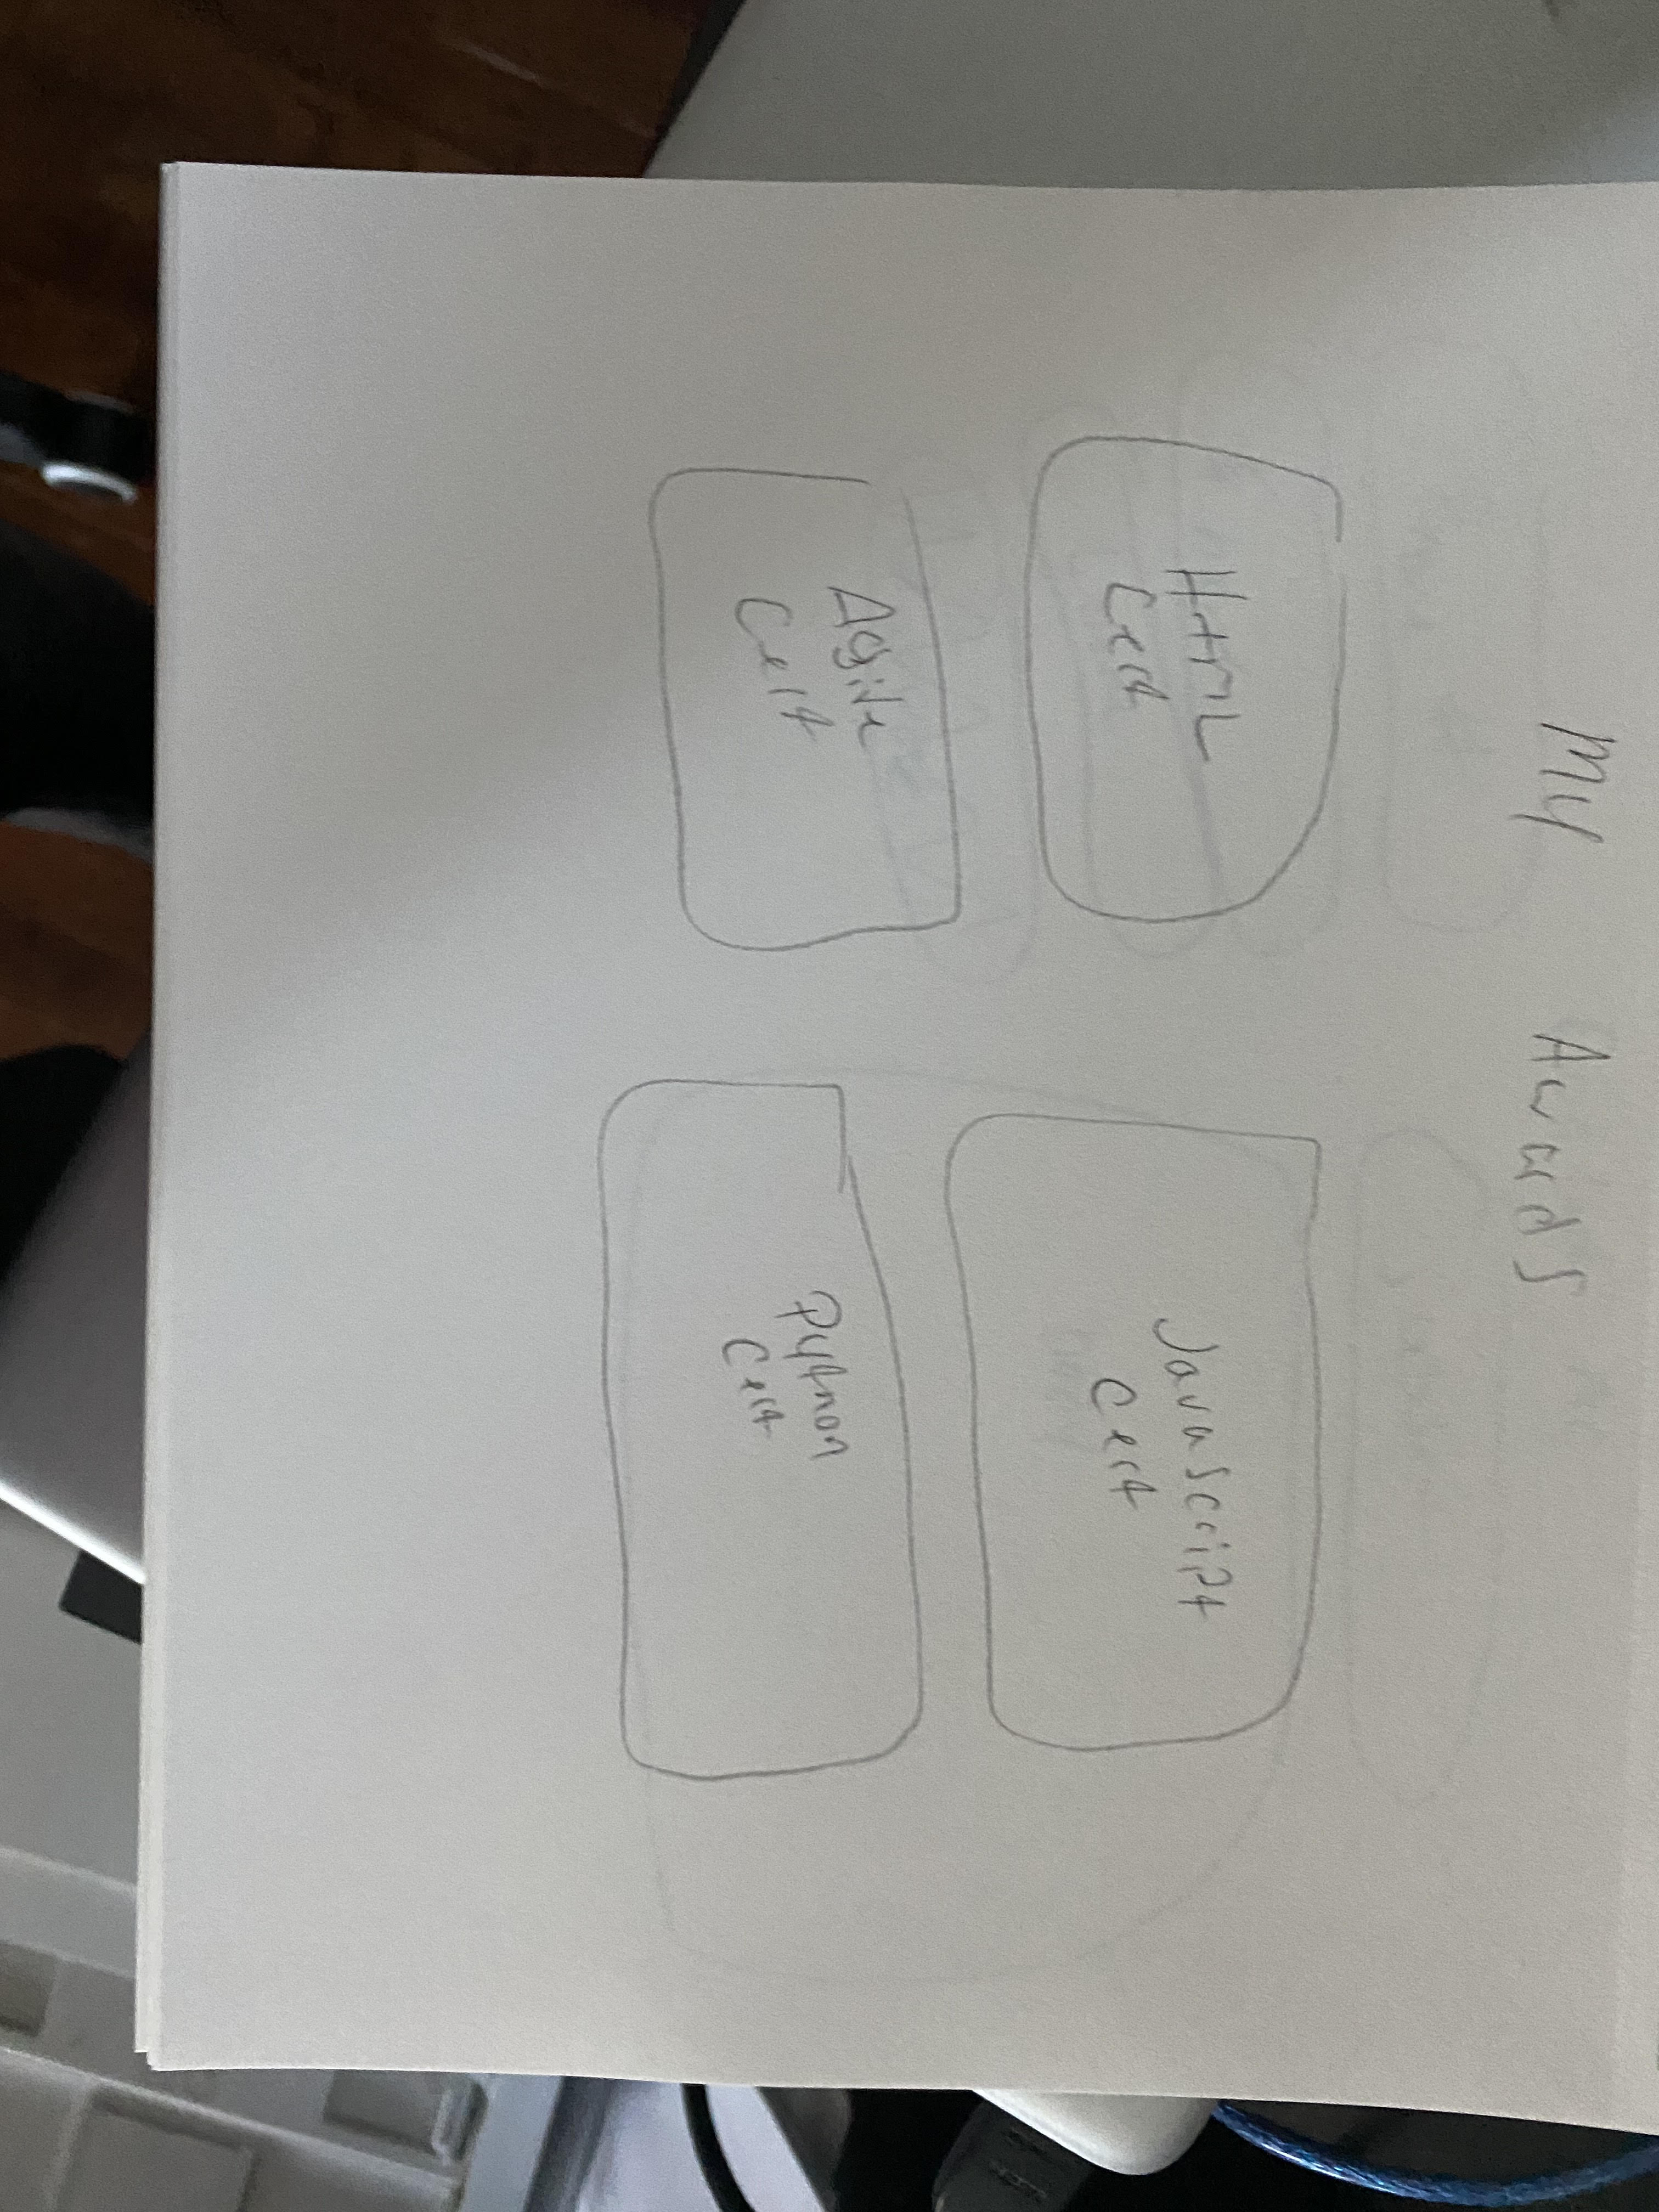 My Awards
HTML
Cert
Javascript
Cert
Agile
Cert
Python
Cert